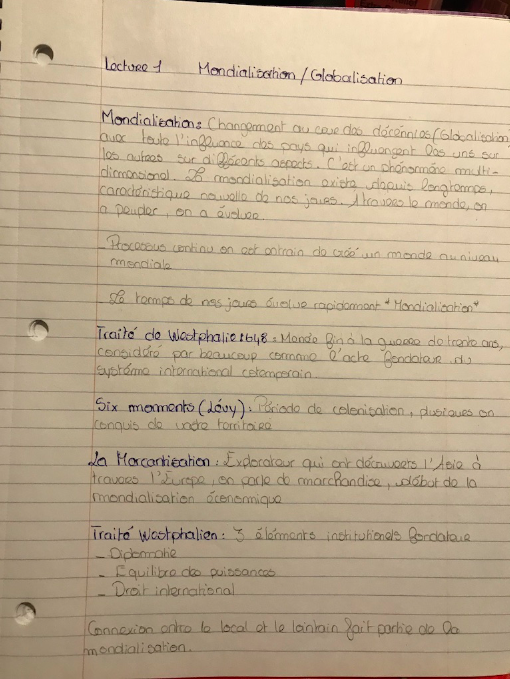 Lecture 1 Mondialisation / Globalisation
Mondialisation: Changement au cour des décennies (Globalisation)
avex toute l'influence des pays qui influencent les uns sur
les autres sur différents aspects. C'est un phénomène multi-
dimensional. La mondialisation existe depuis longtemps,
caractéristique nouvelle de nos jours. A travers le monde, on
a peupler, on a évoluer.
Processus continu on est entrain de créé un monde au niveau
mondiale
Le temps de nos jours évolue rapidement "Mondialisation"
Traité de Westphalie 1648: Monde fin à la guerre de trente ans,
considéré par beaucoup comme l'acte fondateur du
système international contemporain
Six moments (Lévy): Période de colonisation, plusieurs on
conquis de territoire
La Marchantisation: Explorateur qui ont découvers l'Asie à
travers l'Europe, on parle de marchandise, début de la
mondialisation économique
Traité Westphalien: 3 éléments institutionels fondateur
- Diplomatie
- Equilibre des puissances
- Droit international
Connexion entre le local et le lointain fait partie de la
mondialisation.